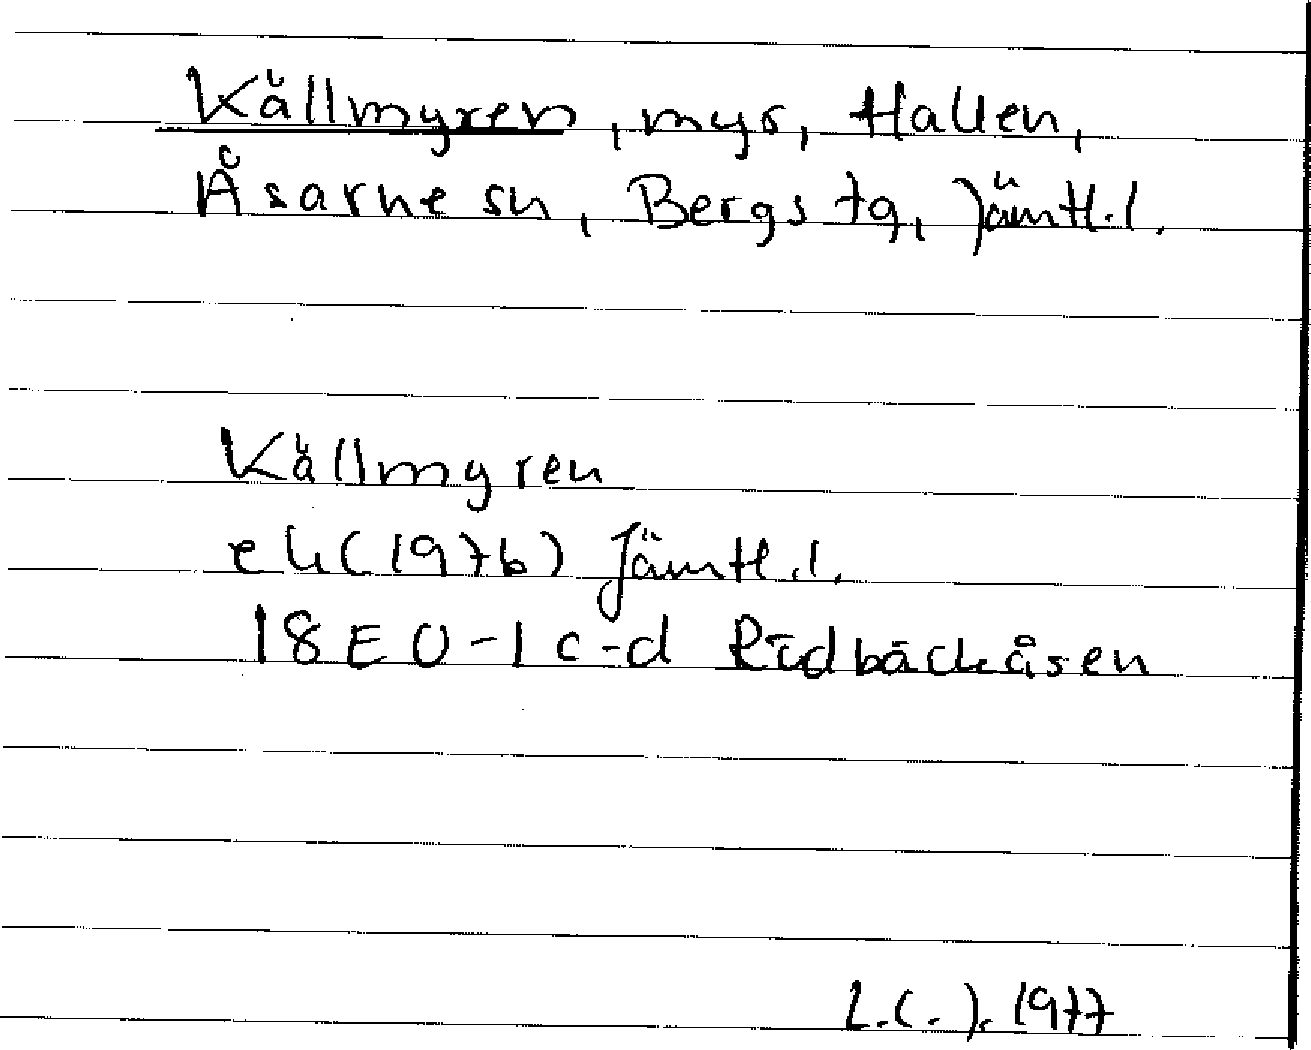 Källmyren, myr, Hallen,
Åsarne sn, Bergs tg, Jämtl. l.
Källmyren
ek (1976) Jämtl. l.
18E 0-1 c-d Rödbäckåsen
1977